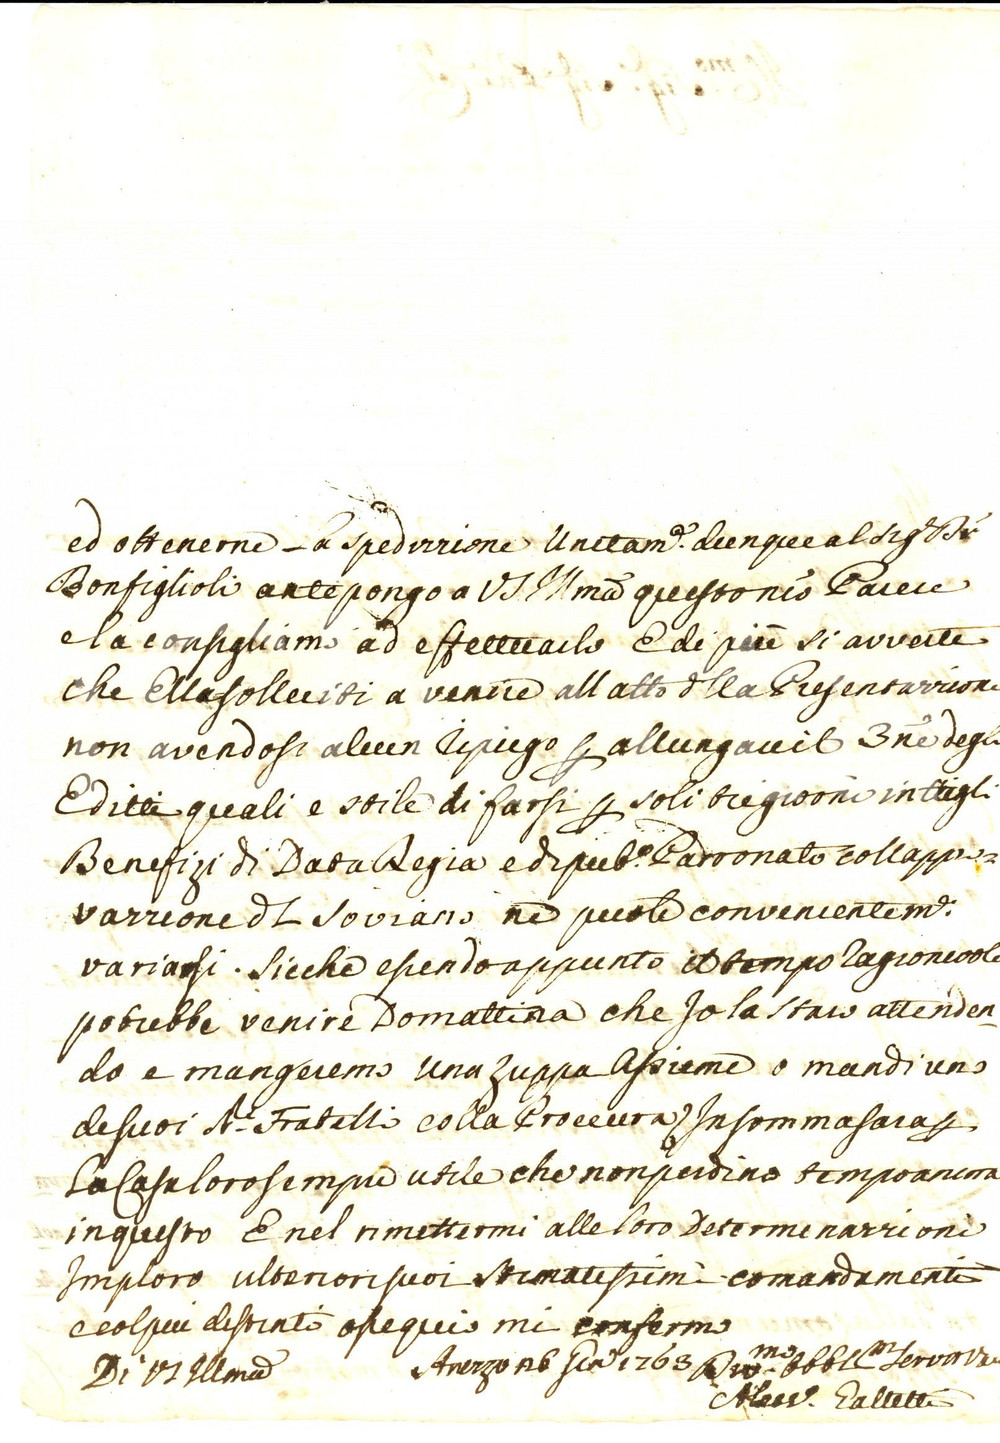 ed ottenerne la spedizzione Unitam.e dunque al Sig.r D.r
Bonfiglioli antepongo a VS Ill.ma questo n͞ro Parere
e la consigliamo ad effettuarlo E di più si avverte
che Ella solleciti a venire all atto d͞lla Presentazzione
non avendosi alcun ripiego p allungare il 3͞ne degl
Editti quali e stile di farsi p soli tre giorni in tt͞i gl
Benefizi di Data Regia e di pub.o Patronato coll appro=
vazzione d͞l Sovrano ne puole convenientem.e
variarsi . Sicche essendo appunto il tempo ragionevole
potrebbe venire Domattina che Jo la starò attenden=
do e mangeremo una zuppa Assieme o mandi uno
de suoi S.ri Fratelli colla Proccura, Insomma sara p
La Casa loro sempre utile che non perdino tempo ancora
in questo E nel rimettermi alle loro Determinazzioni
Imploro ulteriori suoi stimatissimi comandamenti
e col piu distinto ossequio mi confermo
Di VS Ill.ma Arezzo 26 Gen.o 1763 D.mo Obbl.mo Servit.
Aless. Falletti